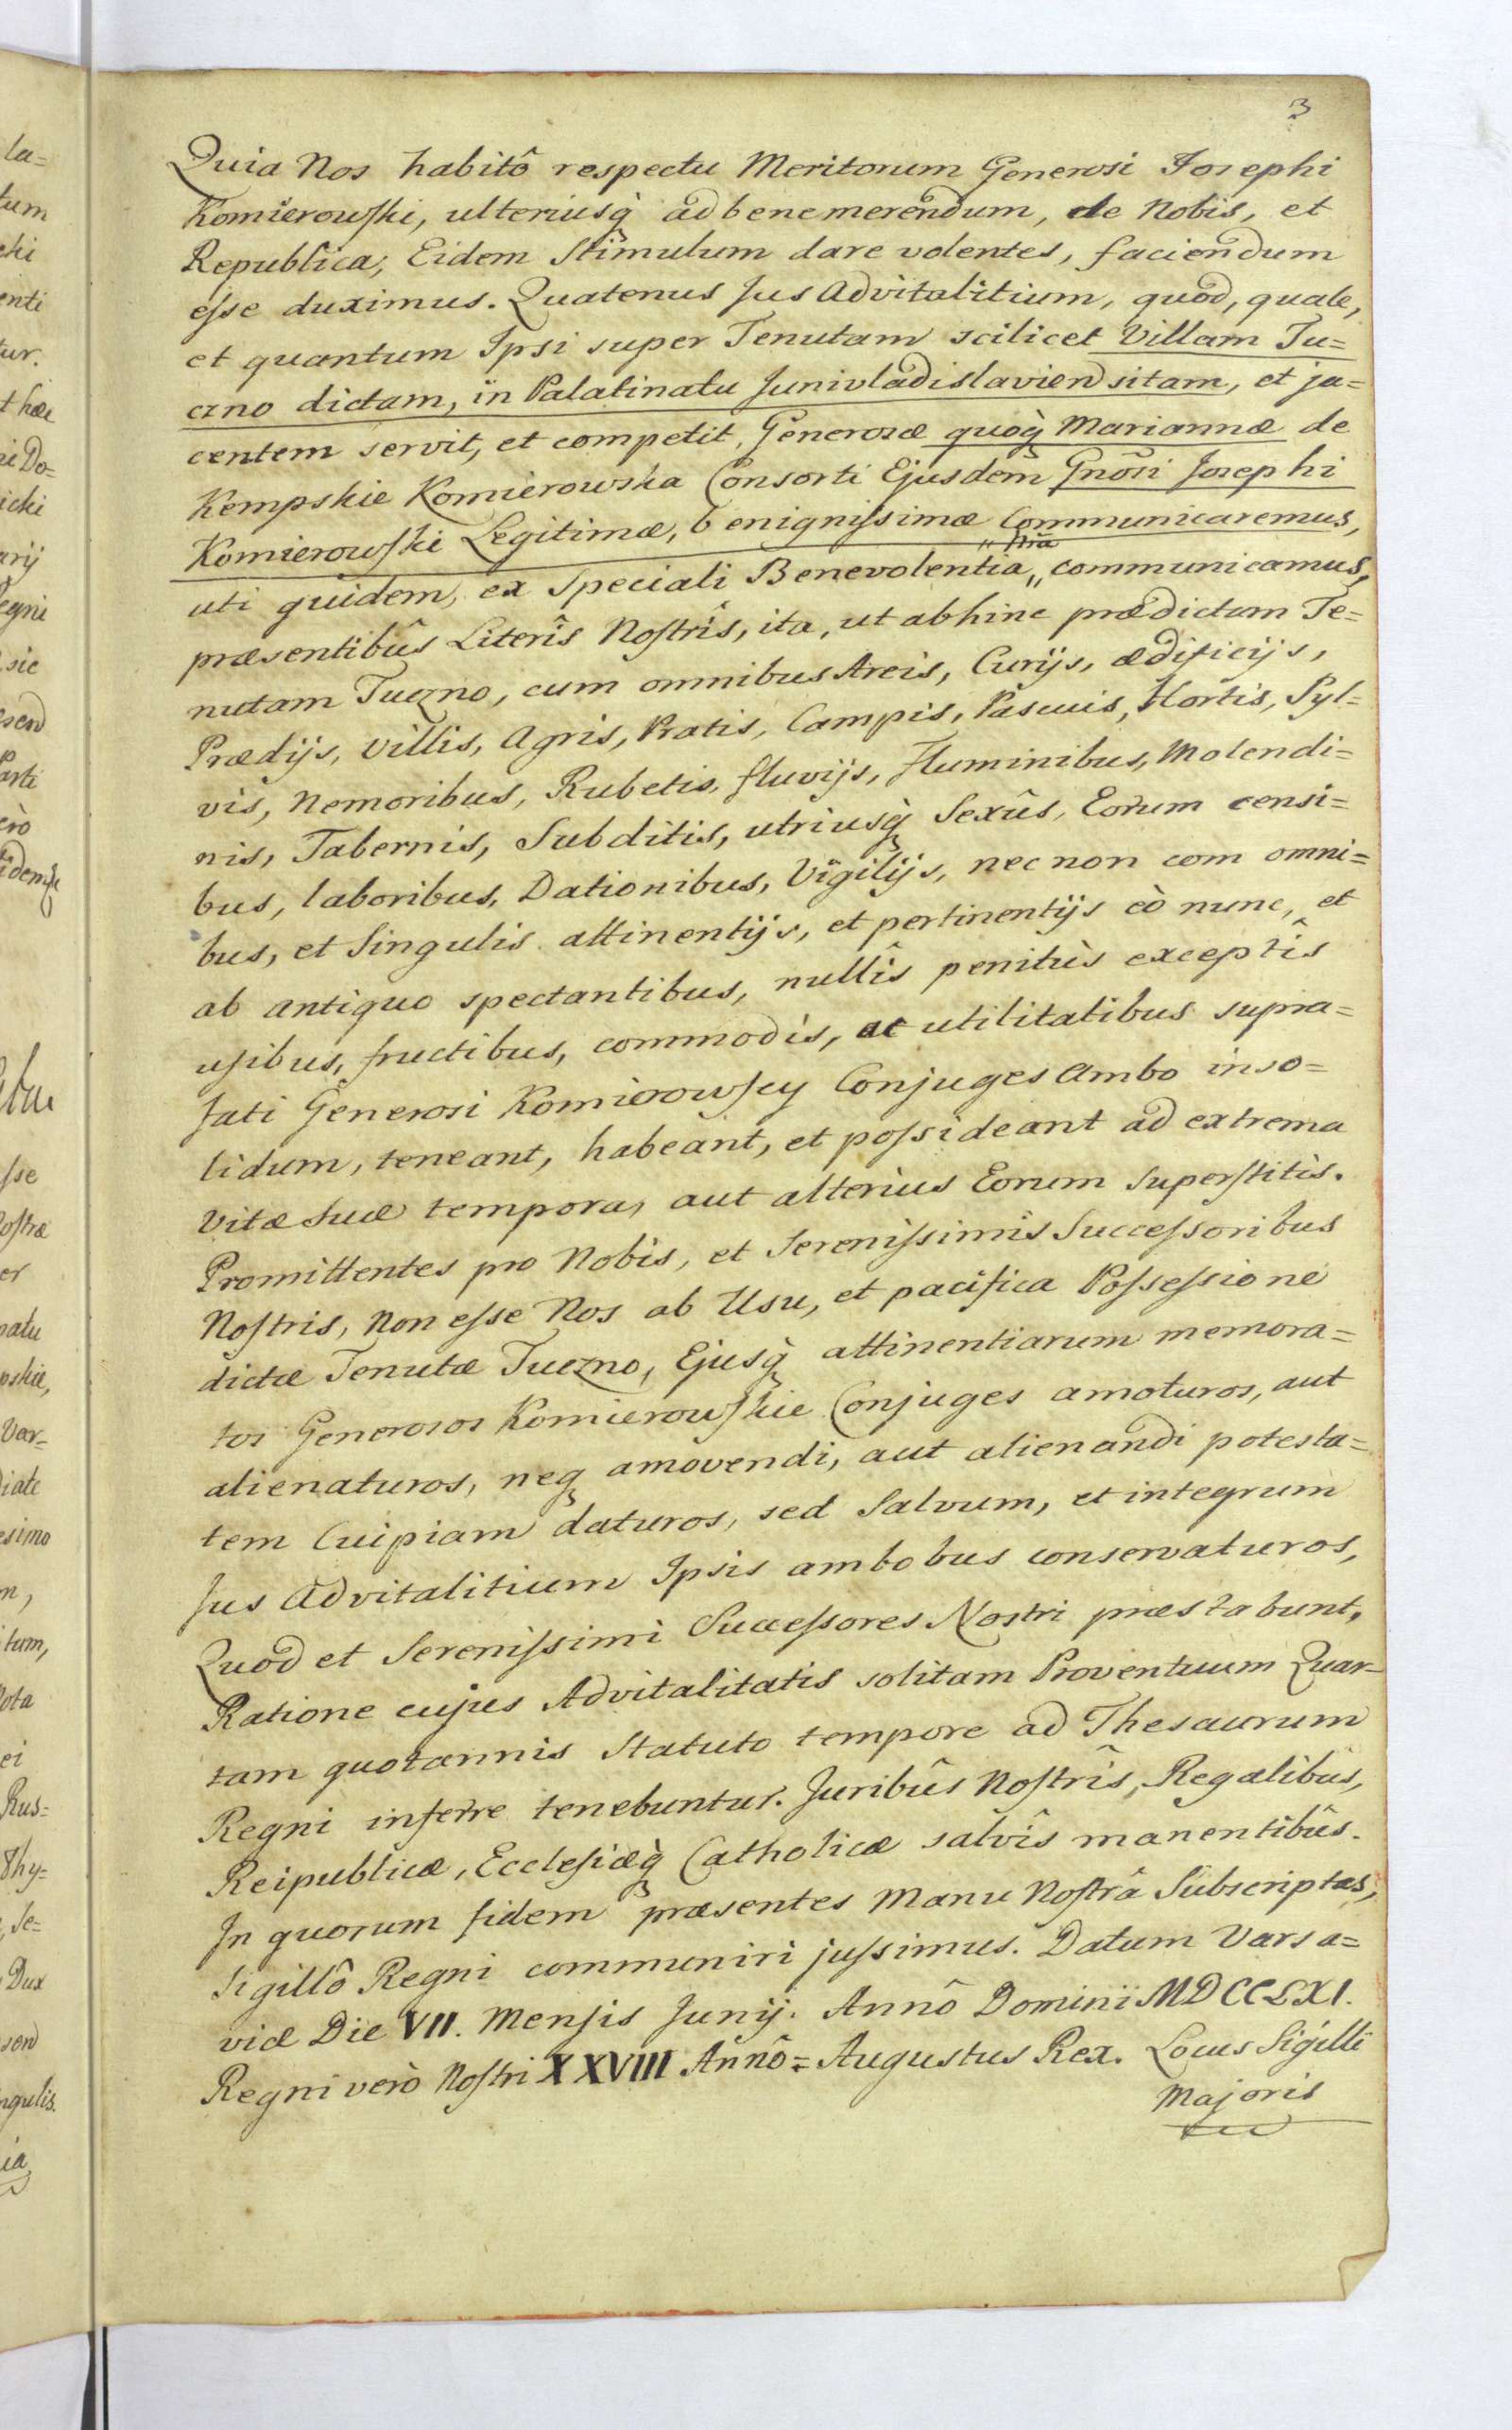 3
Quia Nos habitô respectu Meritorum Generosi Josephi
Komierowski, ulteriusq̀ ad benemerendum, de Nobis, et
Republica, Eidem Stimulum dare volentes, faciendum
esse duximus. Quatenus Jus Advitalitium, quod, quale,
et quantum Ipsi super Tenutam scilicet Villam Tu=
czno dictam, in Palatinatu Junivladislavien sitam, et ja=
centem servit, et competit, Generosæ quoq̀ Mariannæ de
Kempskie Komierowska Consorti Ejusdem Gnôsi Josephi
Komierowski Legitimæ, benignissimæ Communicaremus,
uti quidem, ex Speciali Benevolentia „ stra „ communicamus,
præsentibûs Literîs Nostrîs, ita, ut abhinc prædictam Te=
nutam Tuczno, cum omnibus Areis, Curijs, ædificijs,
Prædijs, Villis, Agris, Pratis, Campis, Pascuis, Hortis, Syl=
vis, Nemoribus, Rubetis, fluvijs, Fluminibus, Molendi=
nis, Tabernis, Subditis, utriusq̀ Sexûs, Eorum censi=
bus, laboribus, Dationibus, Vigilijs, nec non com omni=
bus, et Singulis attinentijs, et pertinentijs eò nunc, et
ab antiquo spectantibus, nullîs penitùs exceptîs
usibus, fructibus, commodis, ac utilitatibus supra=
fati Generosi Komierowscy Conjuges Ambo in so=
lidum, teneant, habeant, et possideant ad extrema
vitæ suæ tempora, aut alterius Eorum Superstitis.
Promittentes pro Nobis, et Serenissimis Successoribus
Nostris, Non esse Nos ab Usu, et pacifica Possessione
dictæ Tenutæ Tuczno, Ejusq̀ attinentiarum memora=
tos Generosos Komierowskie Conjuges amoturos, aut
alienaturos, neq̀ amovendi, aut alienandi potesta=
tem Cuipiam daturos, sed Salvum, et integrum
Jus Advitalitium Ipsis ambobus conservaturos,
Quod et Serenissimi Successores Nostri præstabunt.
Ratione cujus Advitalitatis solitam Proventuum Quar=
tam quotannis Statuto tempore ad Thesaurum
Regni inferre tenebuntur. Juribûs Nostrîs, Regalibus,
Reipublicæ, Ecclesiæq̀ Catholicæ salvîs manentibûs.
In quorum fidem præsentes Manu Nostrâ Subscriptas,
Sigillô Regni communiri jussimus. Datum Varsa=
viæ Die VII. Mensis Junij. Annô Domini MDCCLXI.
Regni verò Nostri XXVIII Annô = Augustus Rex. Locus Sigilli
Majoris